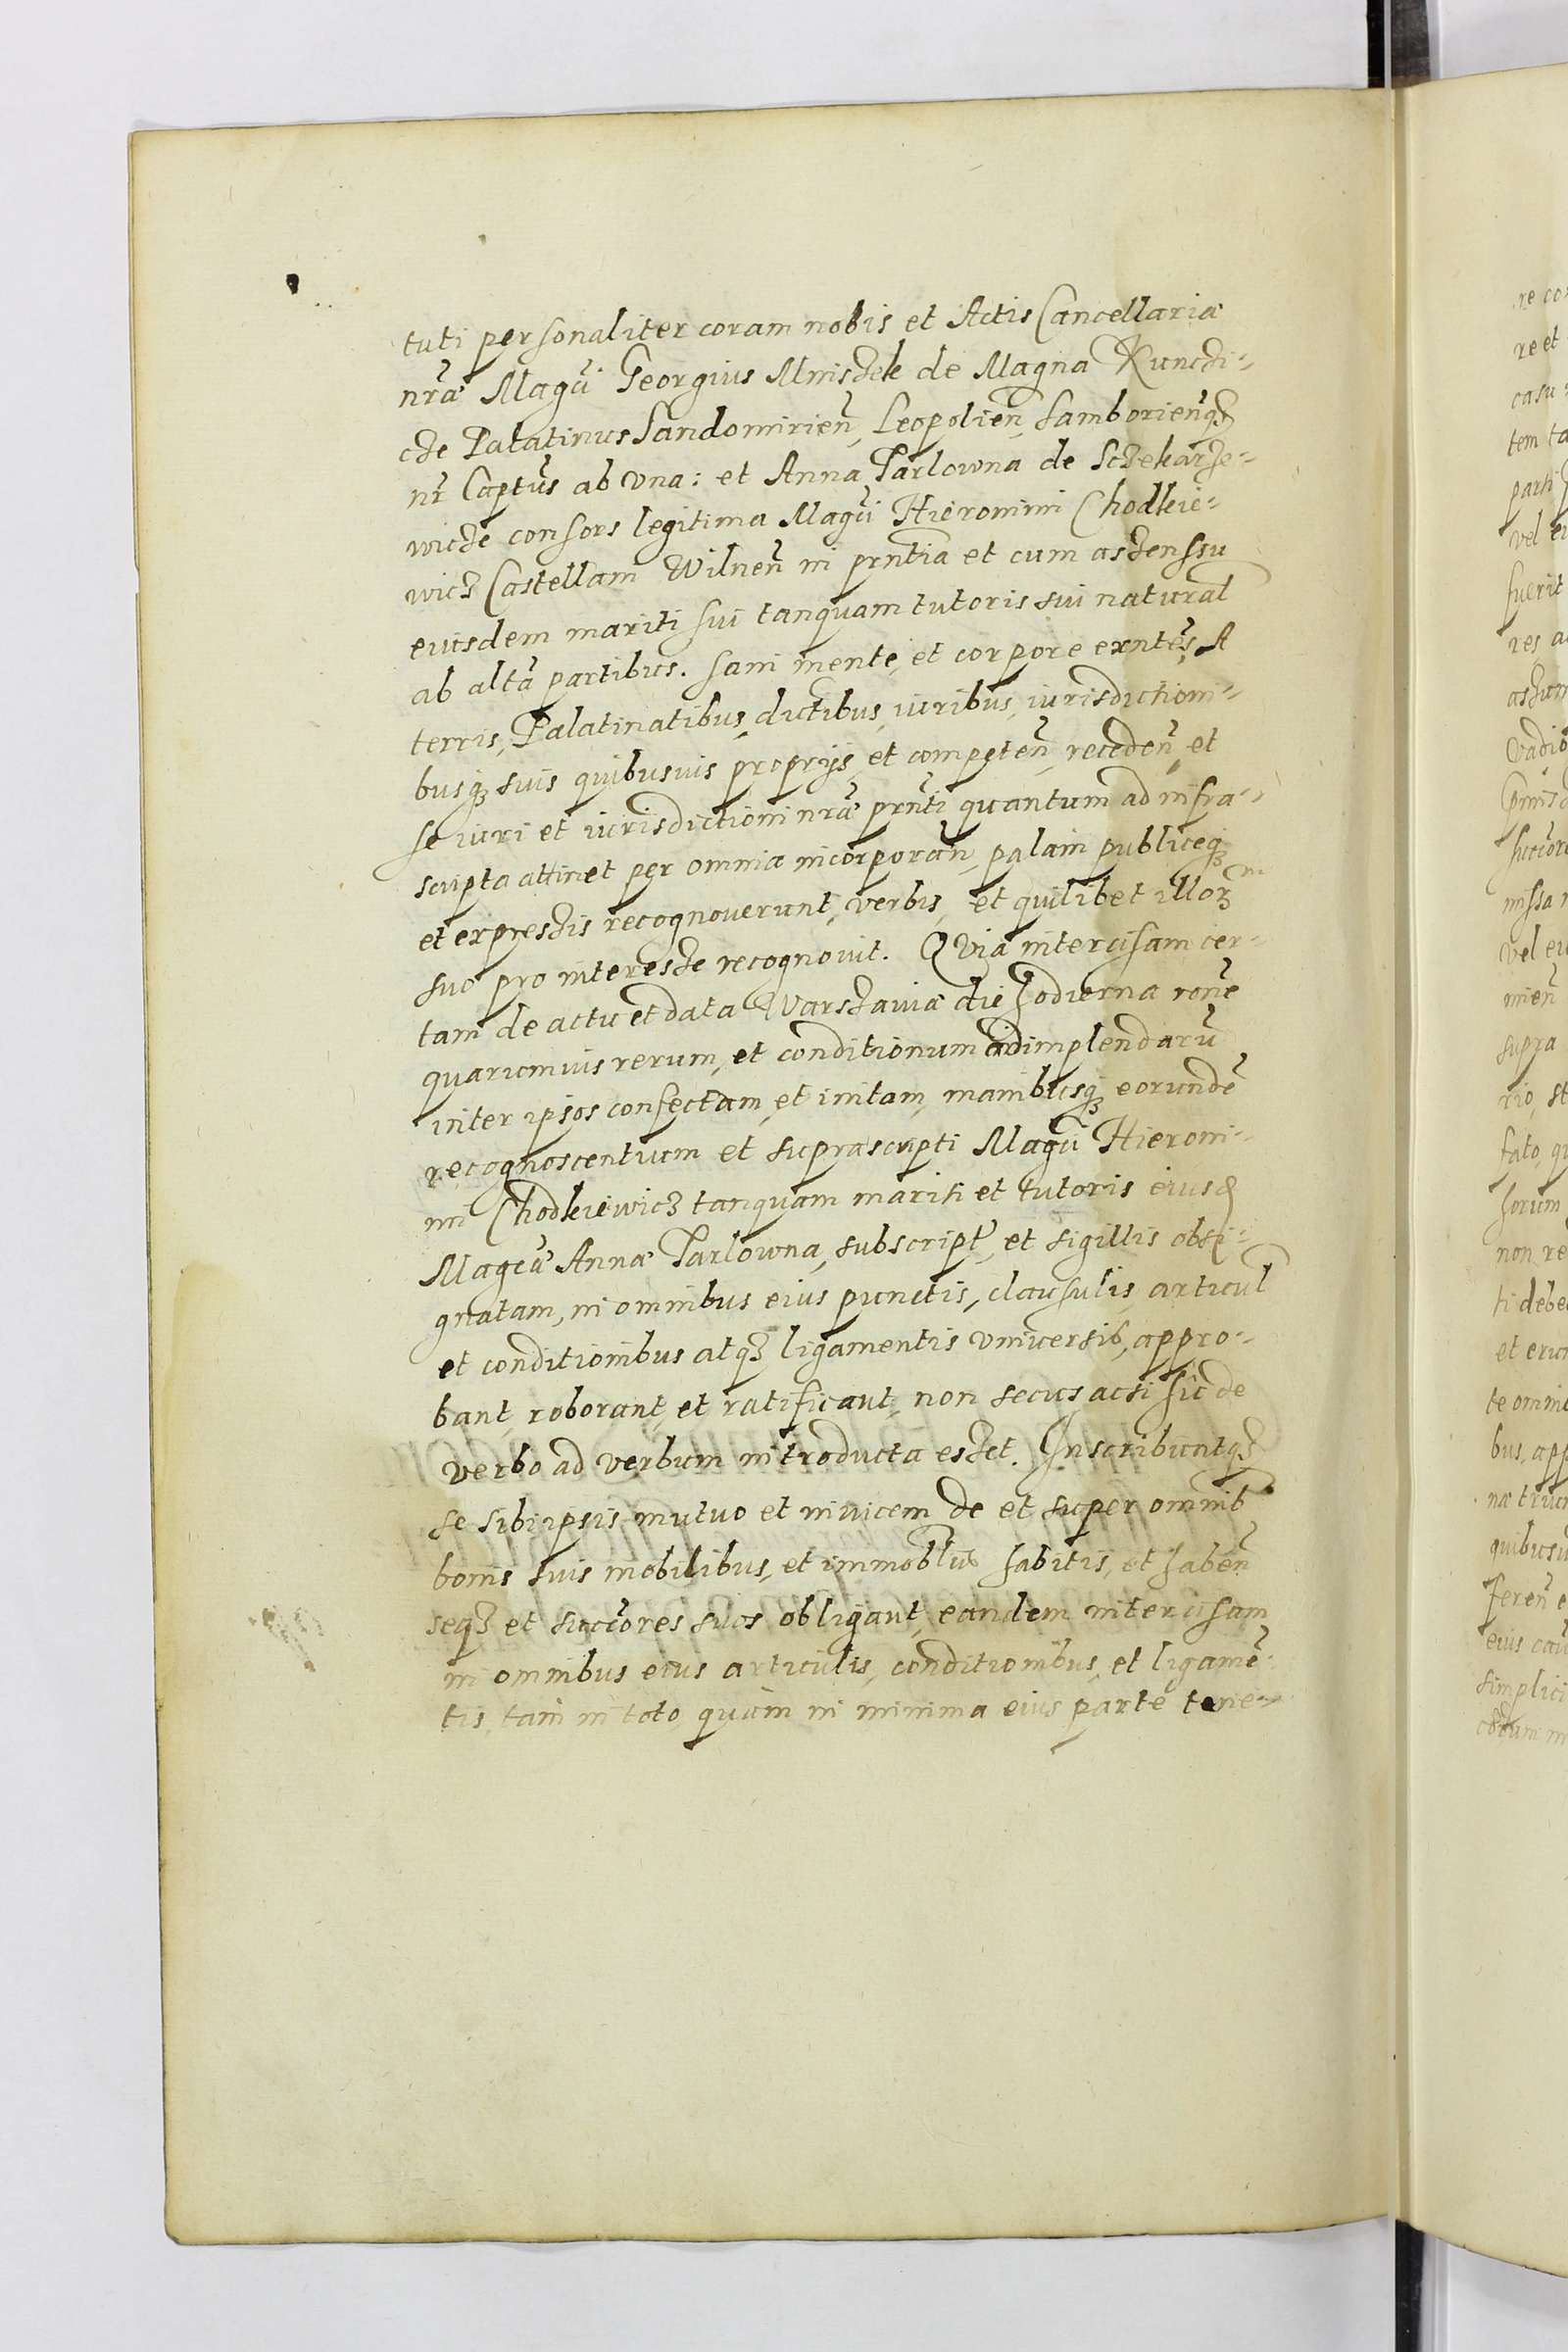 tuti personaliter coram nobis et Actis Cancellariæ
nr̃æ Magc̃i Georgius Mniszek de Magna Kunczi-
cze Palatinus Sandomirien̄, Leopolien̄, Samborien̄q3
nr̃ Captũs ab vna: et Anna Tarlowna de Sczekarze-
wicze consors legitima Magc̃i Hieronimi Chodkie-
wicz Castellani Wilnen̄ in prñtia et cum assensu
eiusdem mariti sui tanquam tutoris sui natural
ab altã partibus. Sani mente, et corpore exñtes, A
terris, Palatinatibus, dictibus, iuribus, iurisdictioni-
busq3 suis quibusuis proprijs et competen̄, receden̄, et
se iuri et iurisdictioni nr̃æ prñti quantum ad infra-
scripta attinet per omnia incorporan̄, palam publiceq3
et expressis recognouerunt, verbis, et quilibet illor3
suo pro interesse recognouit. Quia intercisam cer-
tam de actu et data Warszauiæ die hodierna rõne
quarumuis rerum, et conditionum adimplendarũ
inter ipsos confectam, et initam, manibusq3 eorundẽ
recognoscentium et suprascripti Magc̃i Hieroni-
mi Chodkiewicz tanquam mariti et tutoris eiusd
Magcæ̃ Annæ Tarlowna, subscript, et sigillis obsi-
gnatam, in omnibus eius punctis, clausulis, articul
et conditionibus atq3 ligamentis vniuersis, appro-
bant, roborant, et ratificant, non secus acsi hic de
verbo ad verbum introducta esset. Inscribuntq3
se sibi ipsis mutuo et inuicem de et super omnib
bonis suis mobilibus, et immobl̃ibus habitis, et haben̄
seq3 et succ̃ores suos obligant, eandem intercisam
in omnibus eius articulis, conditionibus, et ligamẽ-
tis, tam in toto, quam in minima eius parte tene-
re et
casu
tem ta
parti
vel ei
fuerit
res a
vadio
missa
vel eu
mien̄
supra
rio, st
fato, qu
horum
non re
ti debe
et eru
te omni
bus, app
quibusu
feren̄ e
eius cau
simplici